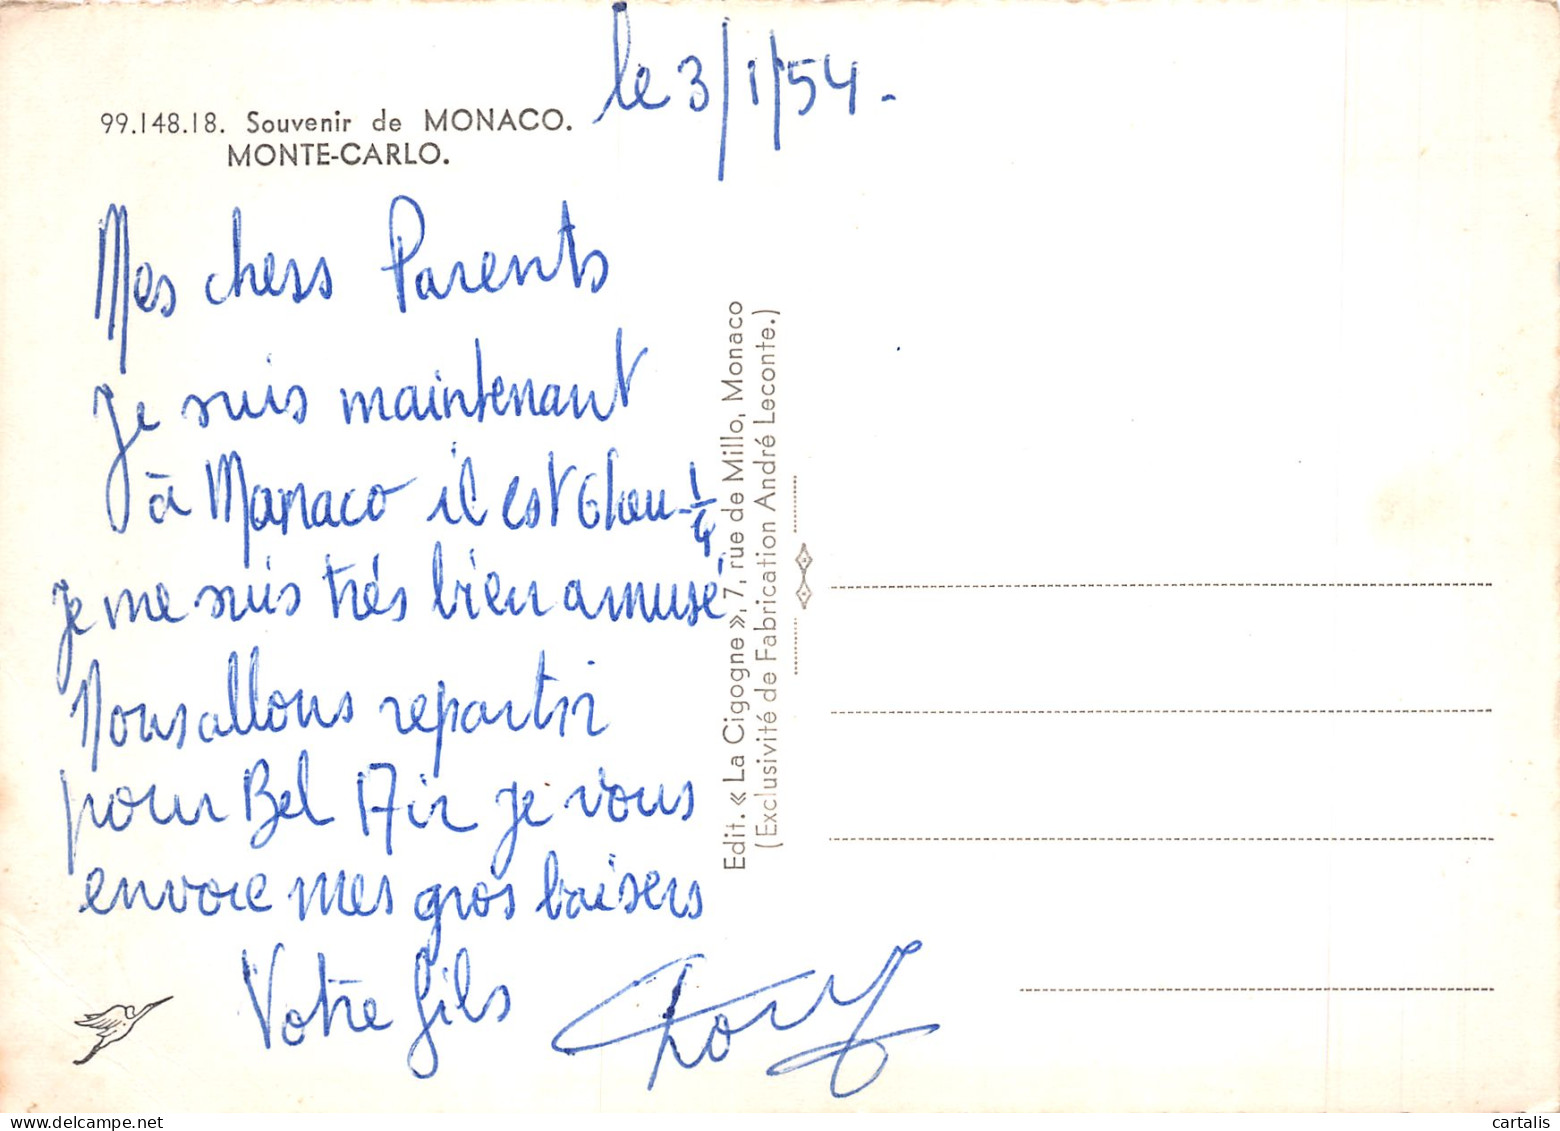 le 3/1/54.
99.148.18. Souvenir de MONACO.
MONTE-CARLO.
Mes chers Parents
Je suis maintenant
à Monaco il est 6 heu 1/4
Je me suis trés bien amusé
Nous allons repartir
pour Bel Air je vous
envoie mes gros baisers
Votre fils
Edit. « La Cigogne », 7, rue de Millo, Monaco
(Exclusivité de Fabrication André Leconte.)
cartalis